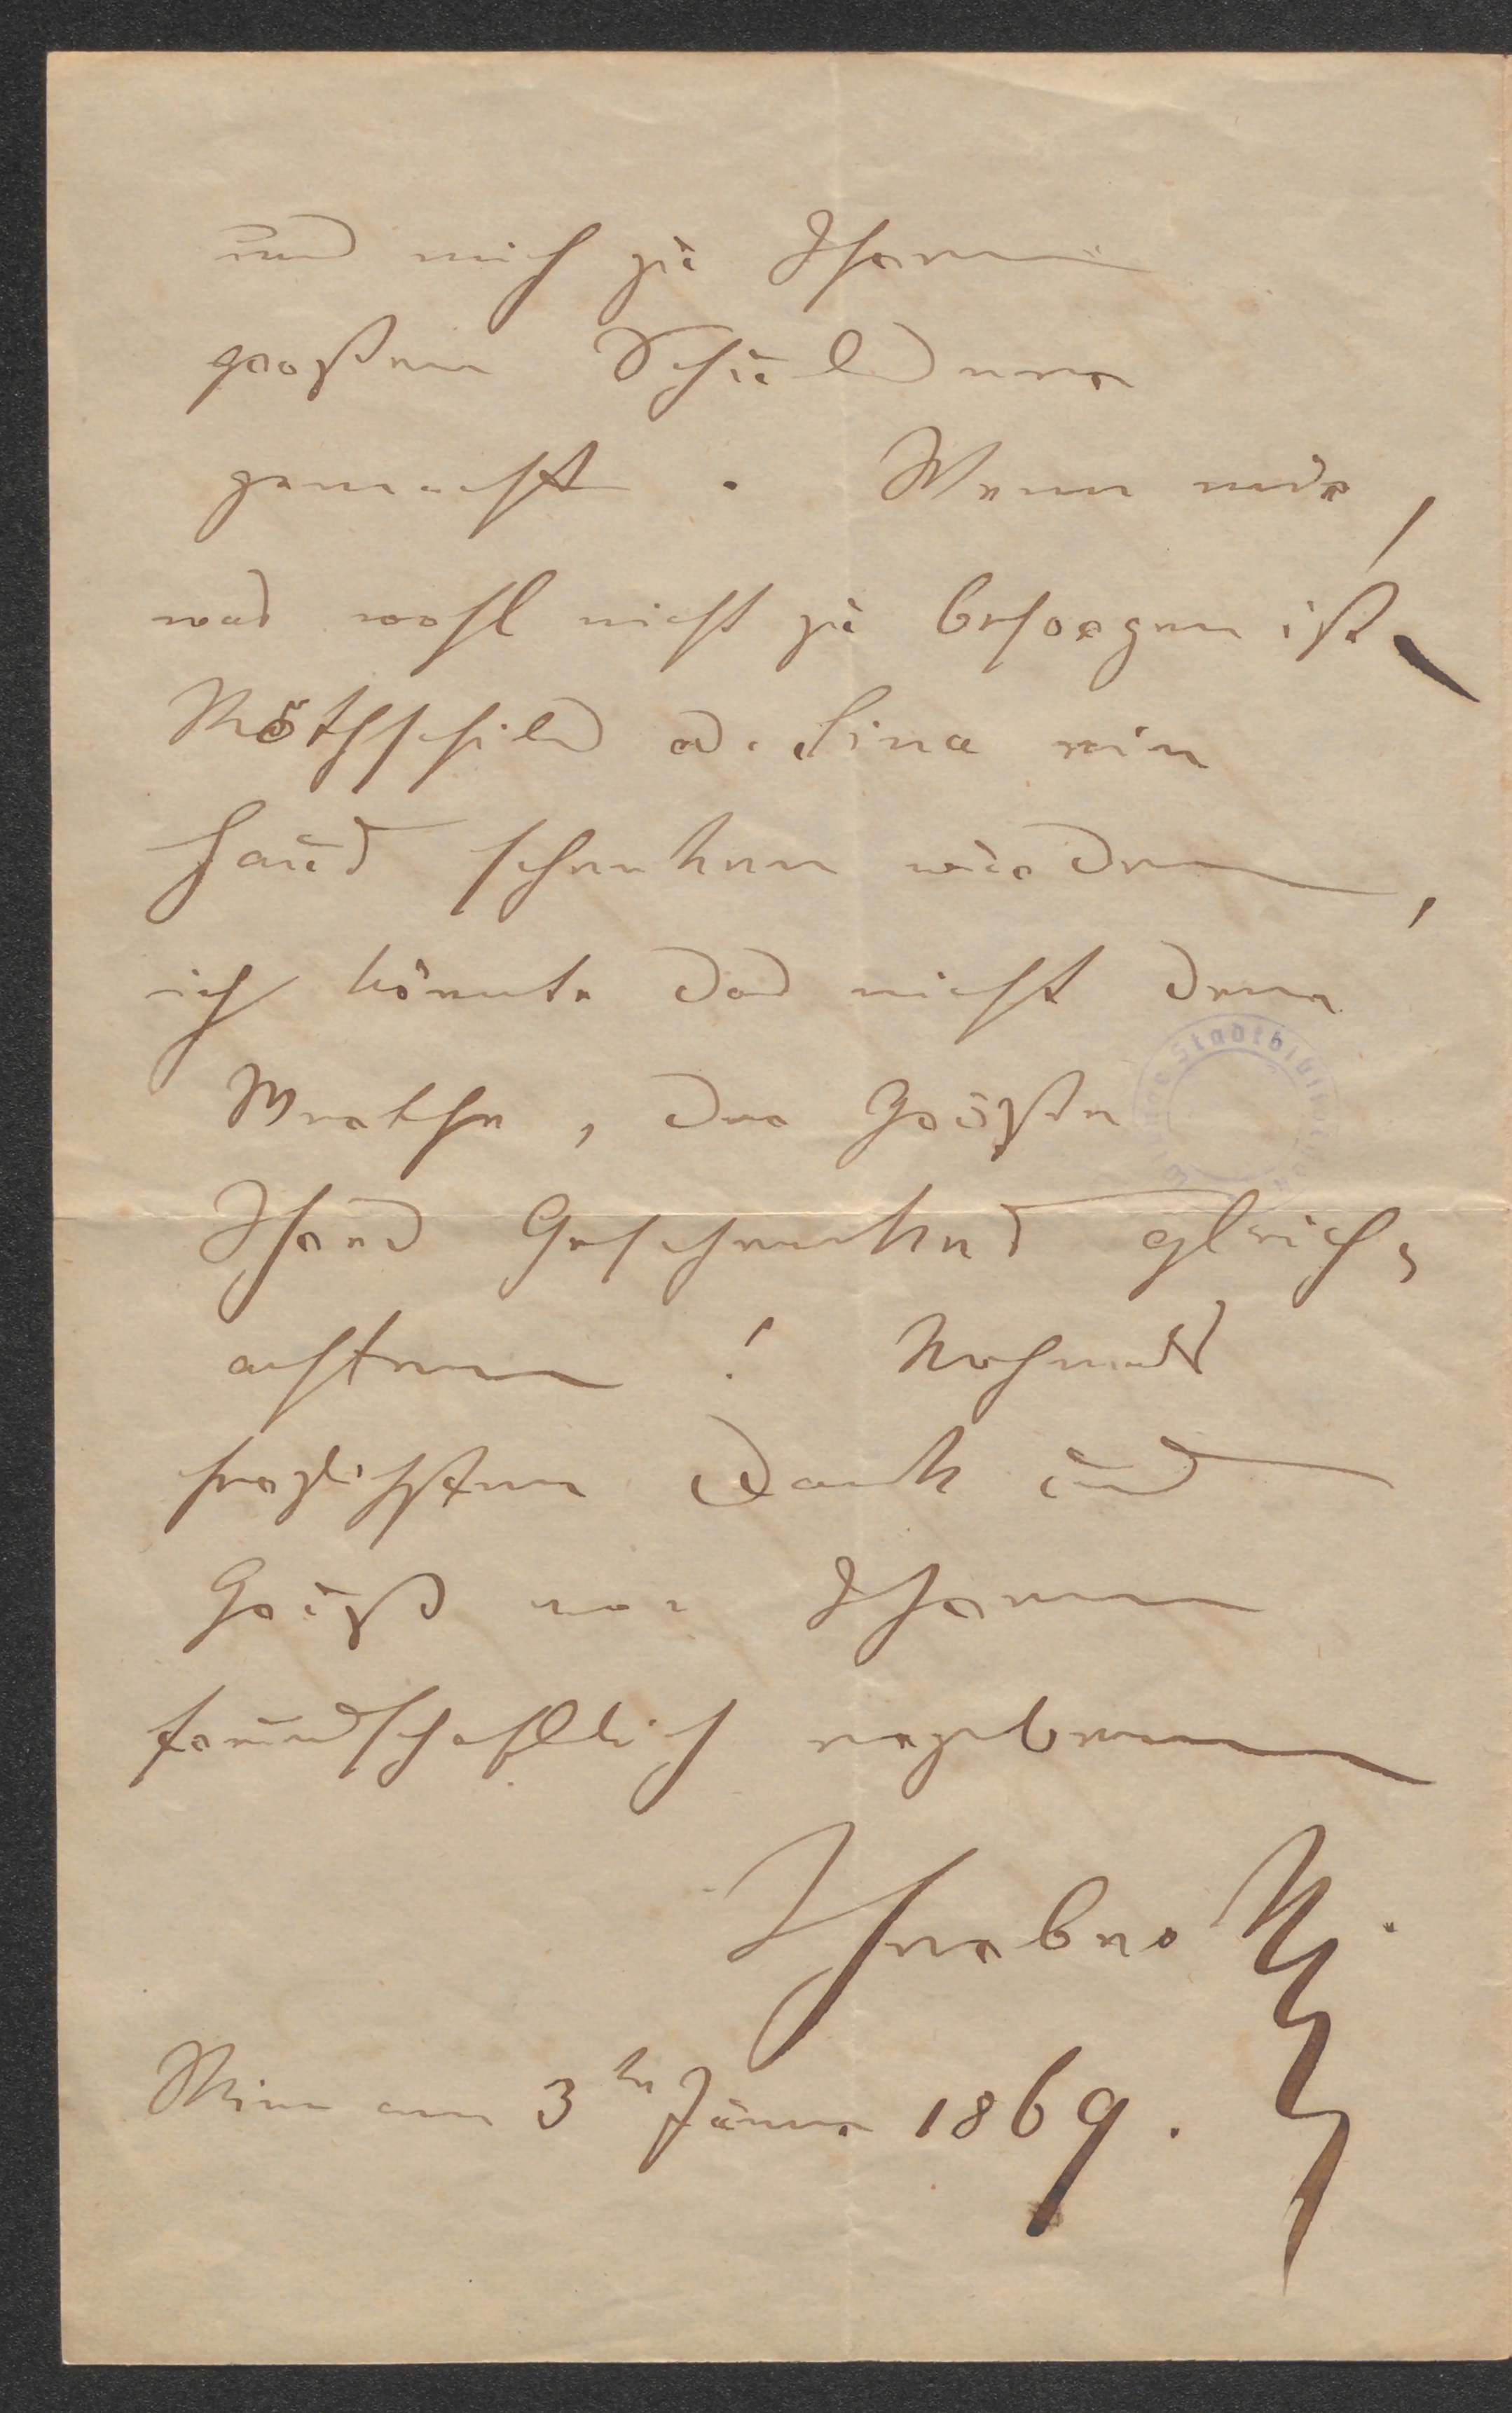 und mich zu Ihrem
großen Schuldner
gemacht. Wenn mir,
was wohl nicht zu besorgen ist,
Rothschild od. Sina ein
Haus schenken würden,
ich könnte das nicht dem
Werthe, der Größe
Ihres Geschenkes gleich,
achten! Nehmen
herzlichsten Dank und
Gruß von Ihrem
freundschaftlich ergebenen
Wien am 3tn Jänner 1869.